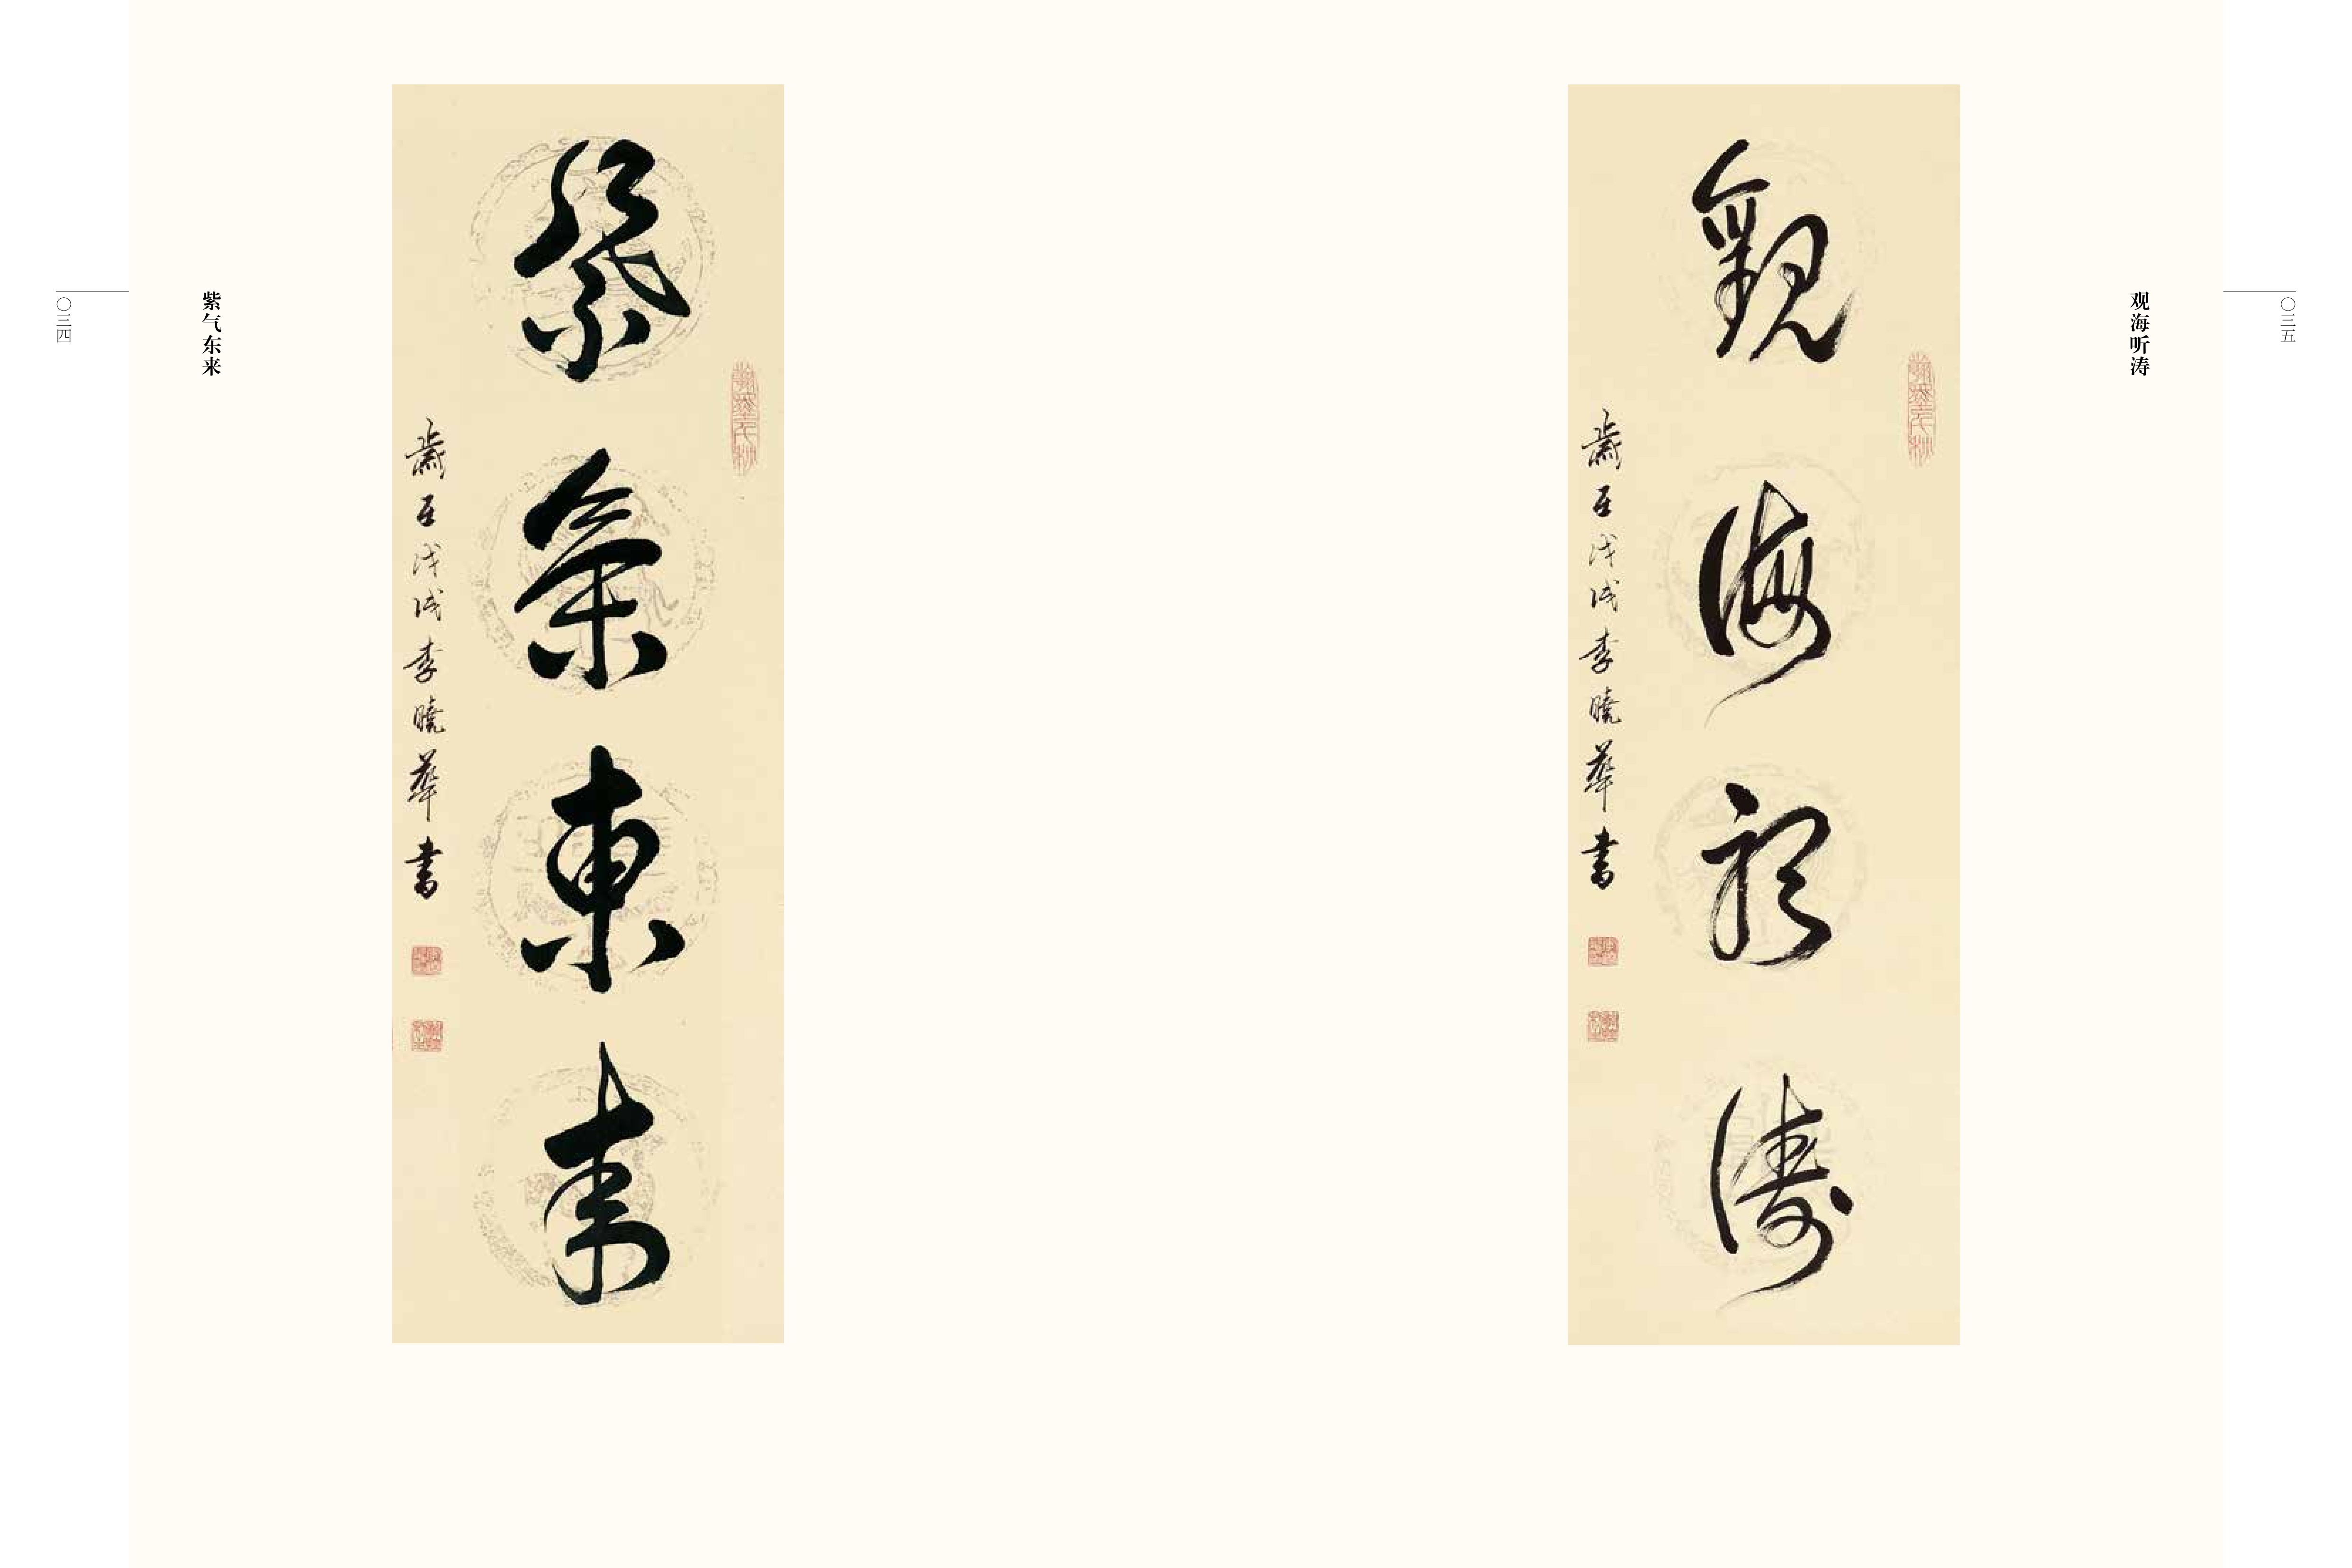 〇三四
紫气东来
紫氣東來
歲在戊戌李曉華書
觀海聽濤
歲在戊戌李曉華書
观海听涛
〇三五